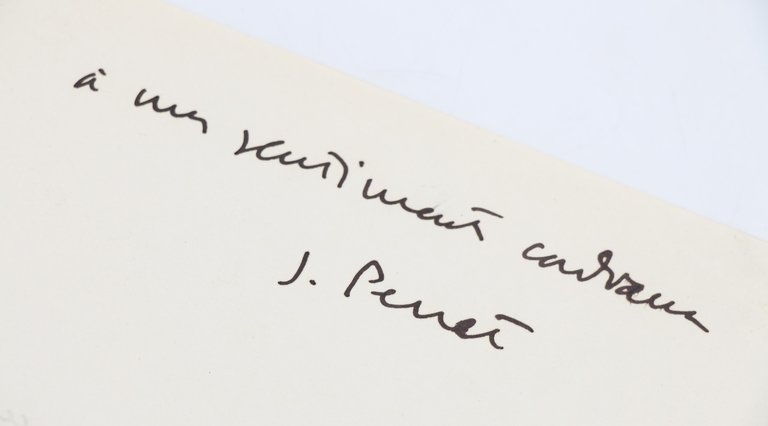 à mes sentiments cordiaux
J. Perret